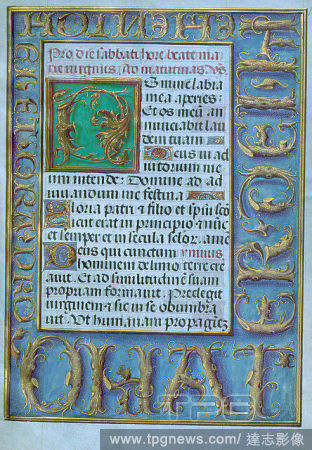 Pro die sabbati hore beate ma
rie virginis. Ad matutinas Vs.
Domine labia
mea aperies:
Et os meū an
nunciabit lau
dem tuam
Deus in ad
iutorium me
um intende: Domine ad ad
iuuandum me festina
Gloria patri et filio et spiui sco
sicut erat in principio et nūc
et semper et in secula sclor. amē
Deus qui cunctum ymnus
hominem de limo terre cre
auit. Et ad similitudinē suam
propriam formauit. Preelegit
virginem et sic in se obumbra
uit Ut humanam
TPG
www.tpgnews.com/達志影像